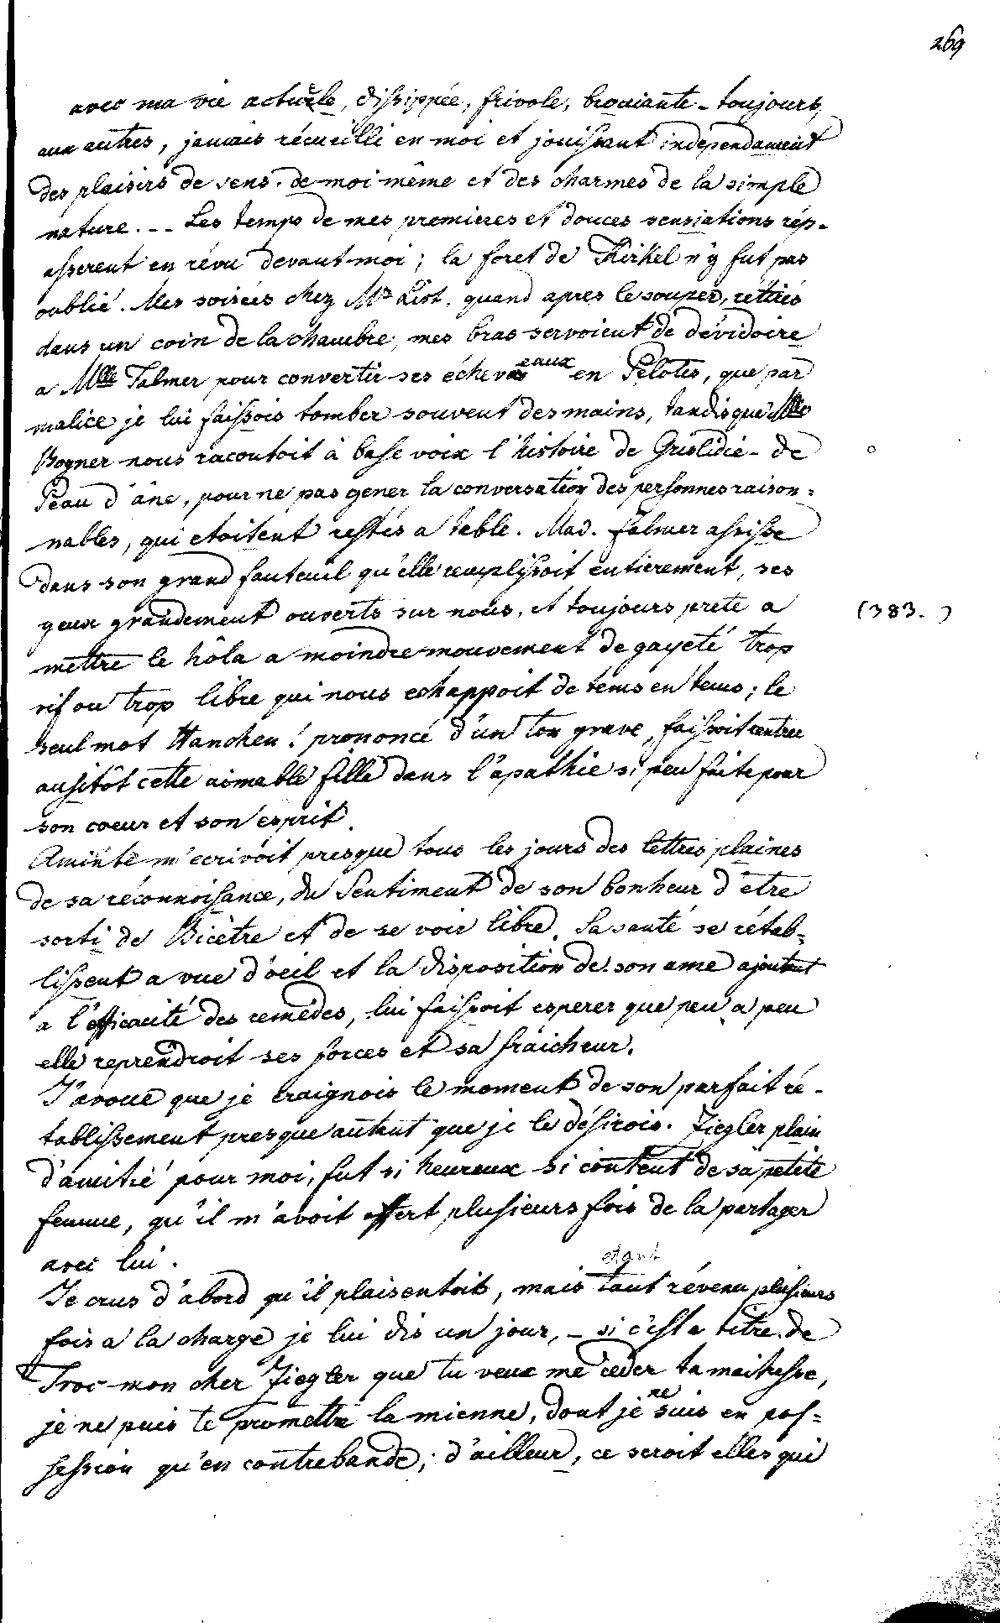 269
avec ma vie actuele, dissippée, frivole, brouiante - toujours
aux autres, jamais récueilli en moi et jouissant independament
des plaisirs de sens. de moi même et des charmes de la simple
nature. -- Les temps de mes premieres et douces sensiations rép-
asserent en révu devant moi; la foret de Kirkel n'y fut pas
oublié. Mes soirées chez Mr List. quand apres le souper, rétirés
dans un coin de la chambre, mes bras servoient de dévidoire
a Mlle Falmer pour convertir ses écheveaux en Pelotes, que par
malice je lui faissois tomber souvent des mains, tandis que Mlle
Bogner nous racontoit à basse voix l'histoire de Grislidie - de
Peau d'âne, pour ne pas gener la conversation des personnes raison=
nables, qui etoitent restés a table. Mad. Falmer assisse
dans son grand fauteuil qu'elle remplissoit entierement, ses
yeux grandement ouverts sur nous, et toujours prete a
(383.)
mettre le hôla a moindre mouvement de gayeté trop
vif ou trop libre qui nous echappoit de tems en tems; le
seul mot Hanchen! prononcé d'un ton grave, faissoit rentrer
ausitôt cette aimable fille dans l'apathie si peu faite pour
son coeur et son esprit.
Aminte m'ecrivoit presque tous les jours des lettres plaines
de sa réconnoissance, du sentiment de son bonheur d'etre
sorti de Bicètre et de se voir libre. Sa santé se rétab-
lissent a vue d'oeil et la disposition de son ame ajoutant
a l'éfficacité des remédes, lui faissoit esperer que peu a peu
elle reprendroit ses forces et sa fraicheur.
J'avoue que je craignois le moment de son parfait ré-
tablissement presque autant que je le désirois. Ziegler plain
d'amitié pour moi, fut si heureux si content de sa petite
femme, qu'il m'avoit offert plusieurs fois de la partager
avec lui.
etant
Je crus d'abord qu'il plaisentoit, mais tant révenu plusieurs
fois a la charge je lui dis un jour, - si c'est a titre de
Troc mon cher Ziegler que tu veux me ceder ta maitresse,
je ne puis te promettre la mienne, dont je ne suis en pos=
session qu'en contrebande; d'ailleur, ce seroit elles qui